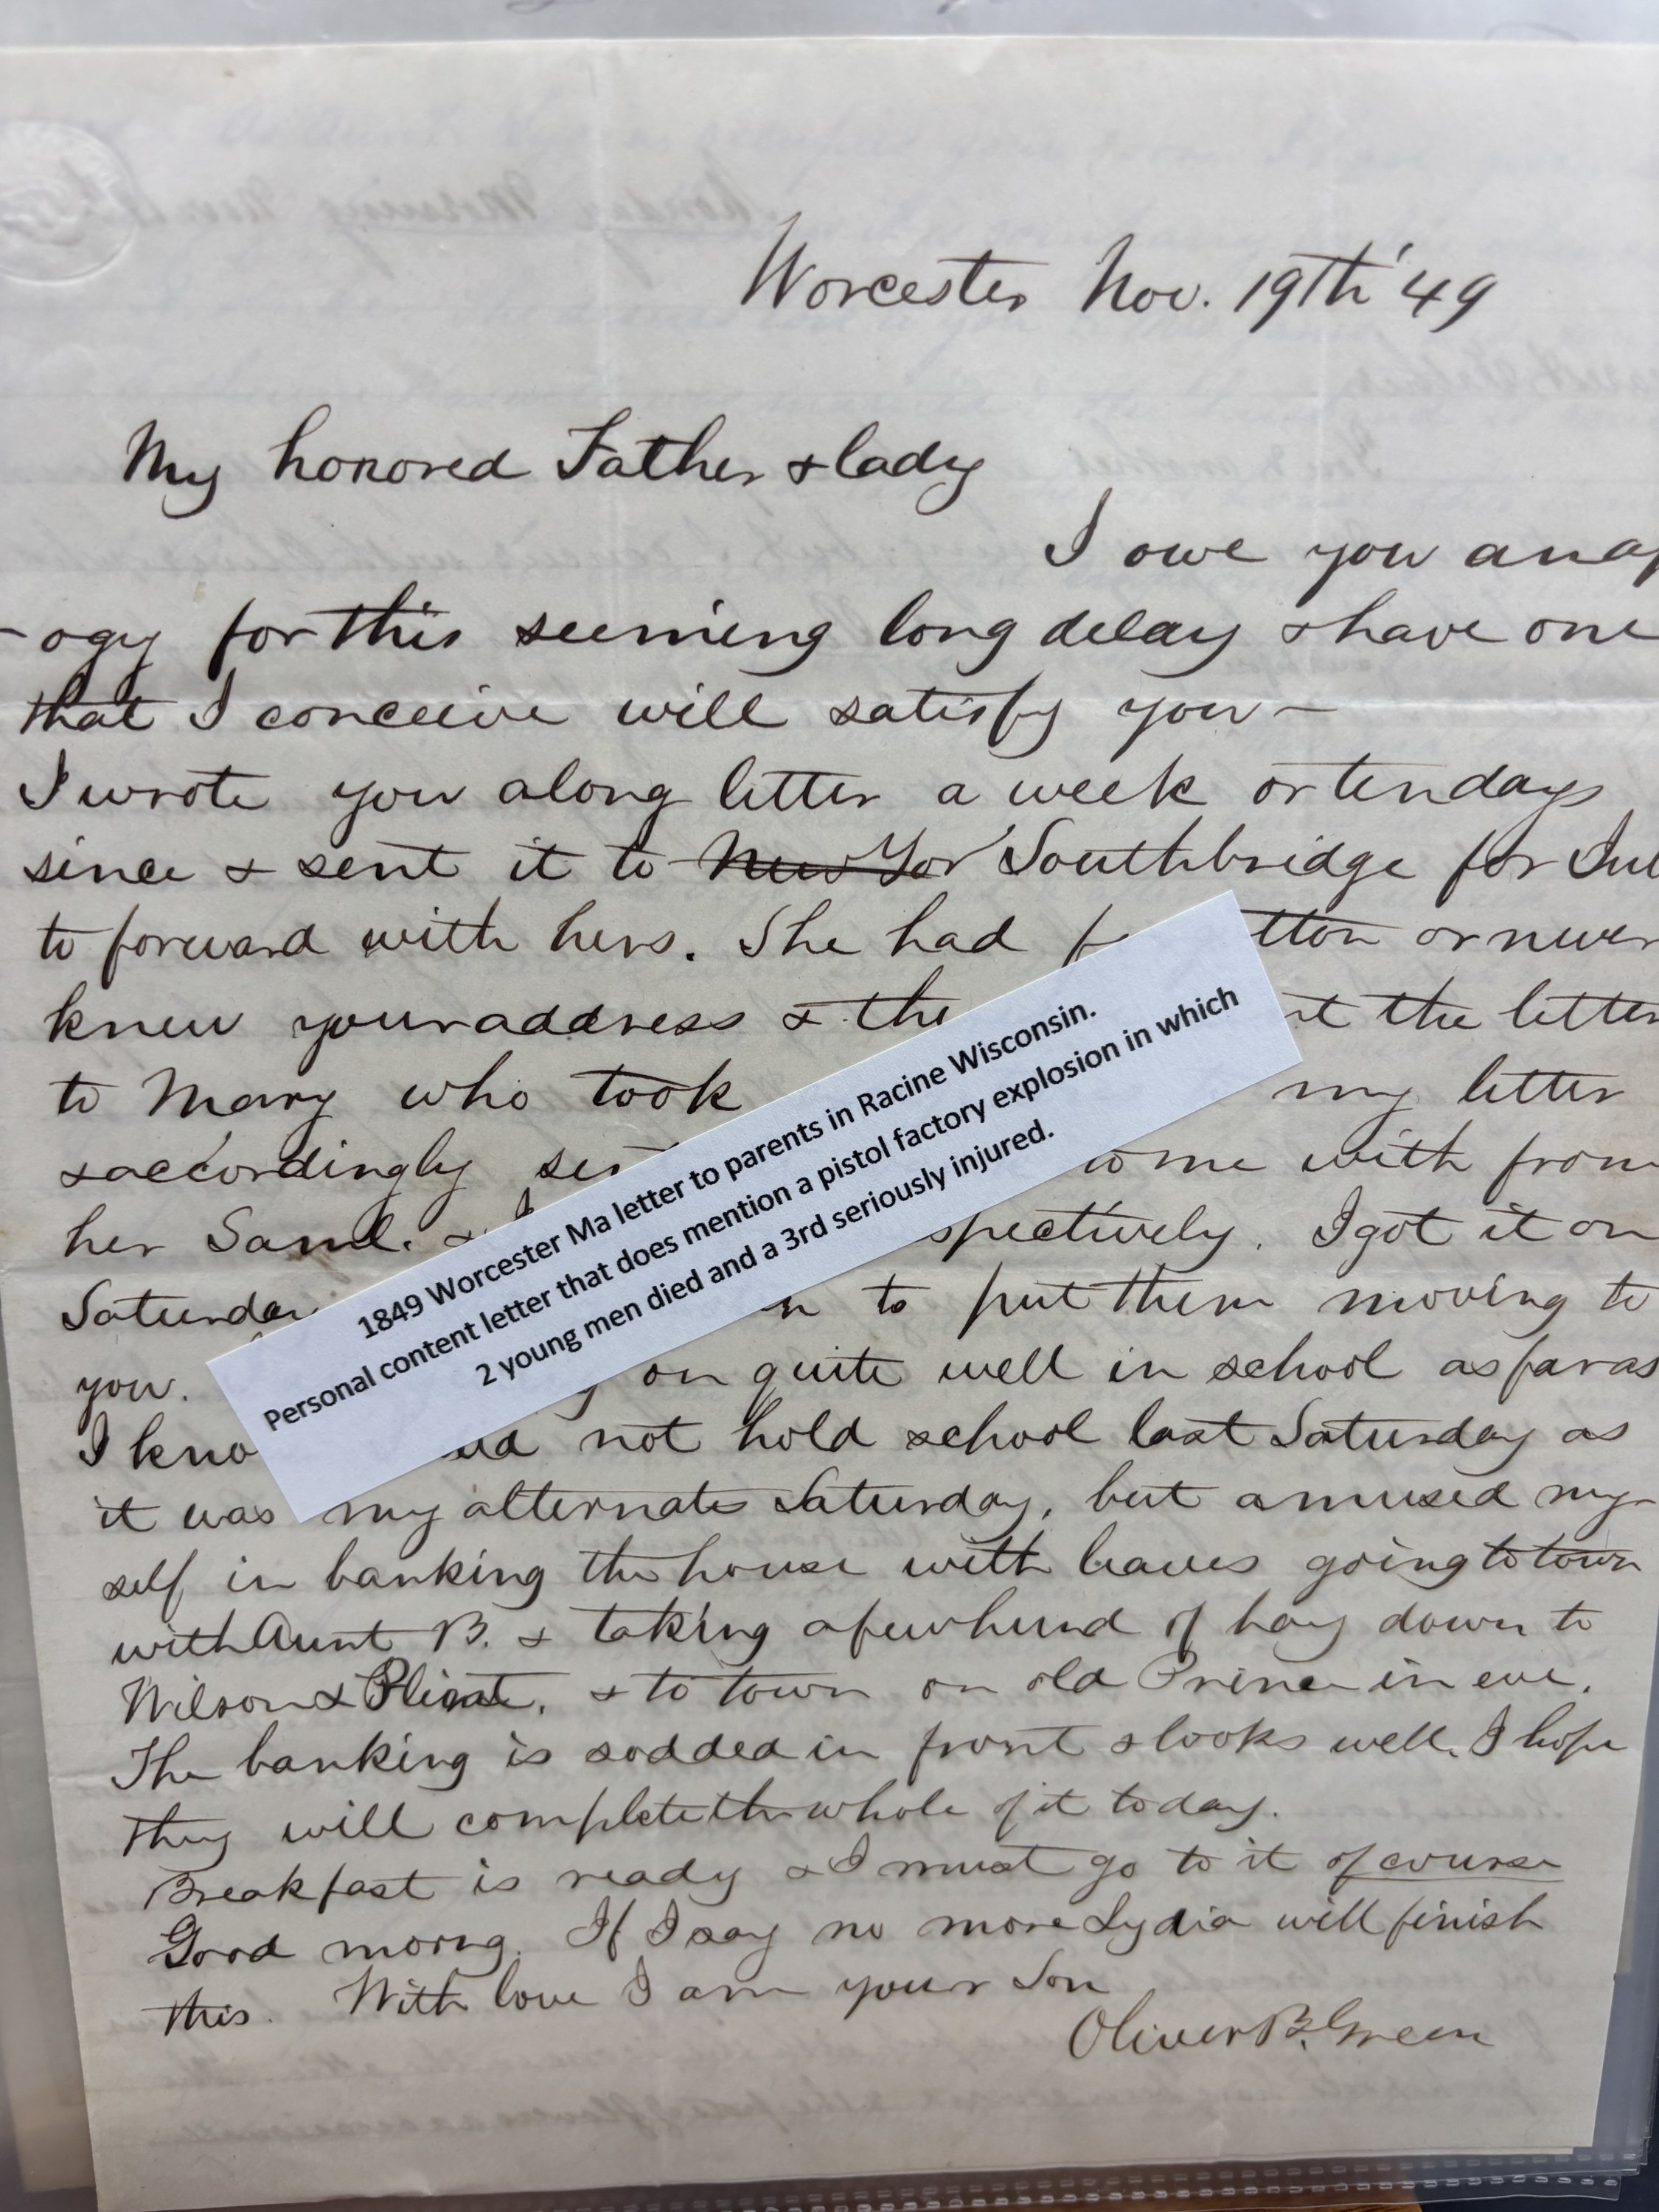 Worcester Nov. 19Th '49
My honored Father & lady
I owe you an ap
-ogy for this seeming long delay & have one
that I conceive will satisfy you -
I wrote you a long letter a week or ten days
since & sent it to New Yor Southbridge for
to forward with hers. She had or never
knew your address & the the letter
to Mary who took my letter
& accordingly come with from
her Saml. & I got it on
to put them moving to
you. on quite well in school as far as
I not hold school last Saturday as
it was my alternate Saturday, but amused my-
self in banking the house with leaves going to town
with Aunt B. & taking a few hund of hay down to
Wilson & & to town on old Prince in eve.
The banking is sodded in front & looks well. I hope
they will complete the whole of it today.
Breakfast is ready & I must go to it of course
Good morng. If I say no more Lydia will finish
this. With love I am your Son
Oliver B. Green
1849 Worcester Ma letter to parents in Racine Wisconsin.
Personal content letter that does mention a pistol factory explosion in which
2 young men died and a 3rd seriously injured.